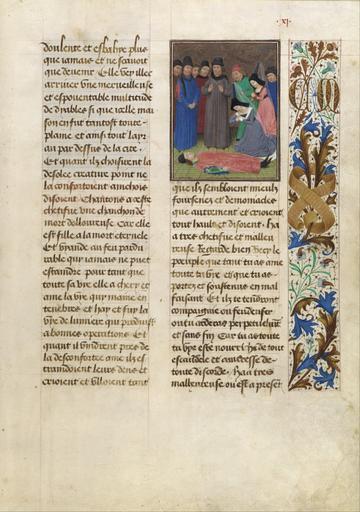 .xj.
doulente et esbahye plus
que iamais et ne scauoit
que deuenir Elle vey illec
arriuer vne merueilleuse
et espouentable multitude
de dyables si que icelle mai
son en fut tantost toute
plaine et ainsi tout lair
au par dessus de la cite.
Et quant ilz choisirent la
desolee creature point ne
la confortoient aincois
disoient Chantons a ceste
chetiue vne chancon de
mort doulloureuse Car elle
est fille a la mort eternele
Et viande au feu pardu
rable qui iamais ne puet
estaindre pour tant que
toute sa vye elle a chery et
ame la vye qui maine en
tenebres et hay et fuy la
vye de lumiere qui produist
a bonnes operations Et
quant ilz vindrent pres de
la desconfortee ame ilz es
traindoient leurs dens et
crioient et vlloient tant
que ilz sembloient mieulx
fourseney et demoniacles
que autrement et crioient
tout hault et disoient. Ha
a tres chetiue et malleu
reuse Regarde bien Vecy le
poeuple que tant tu as ame
toute ta vye et que tu as
portez et soustenus en mal
faisant Et ilz te tendront
compaignie ou feu denfer
ou tu arderas perpetuelment
et sans fin Car tu as toute
ta vye este nourrie de tout
escandele et amerresse de
toute discorde. Haa tres
malheureuse ou est a present